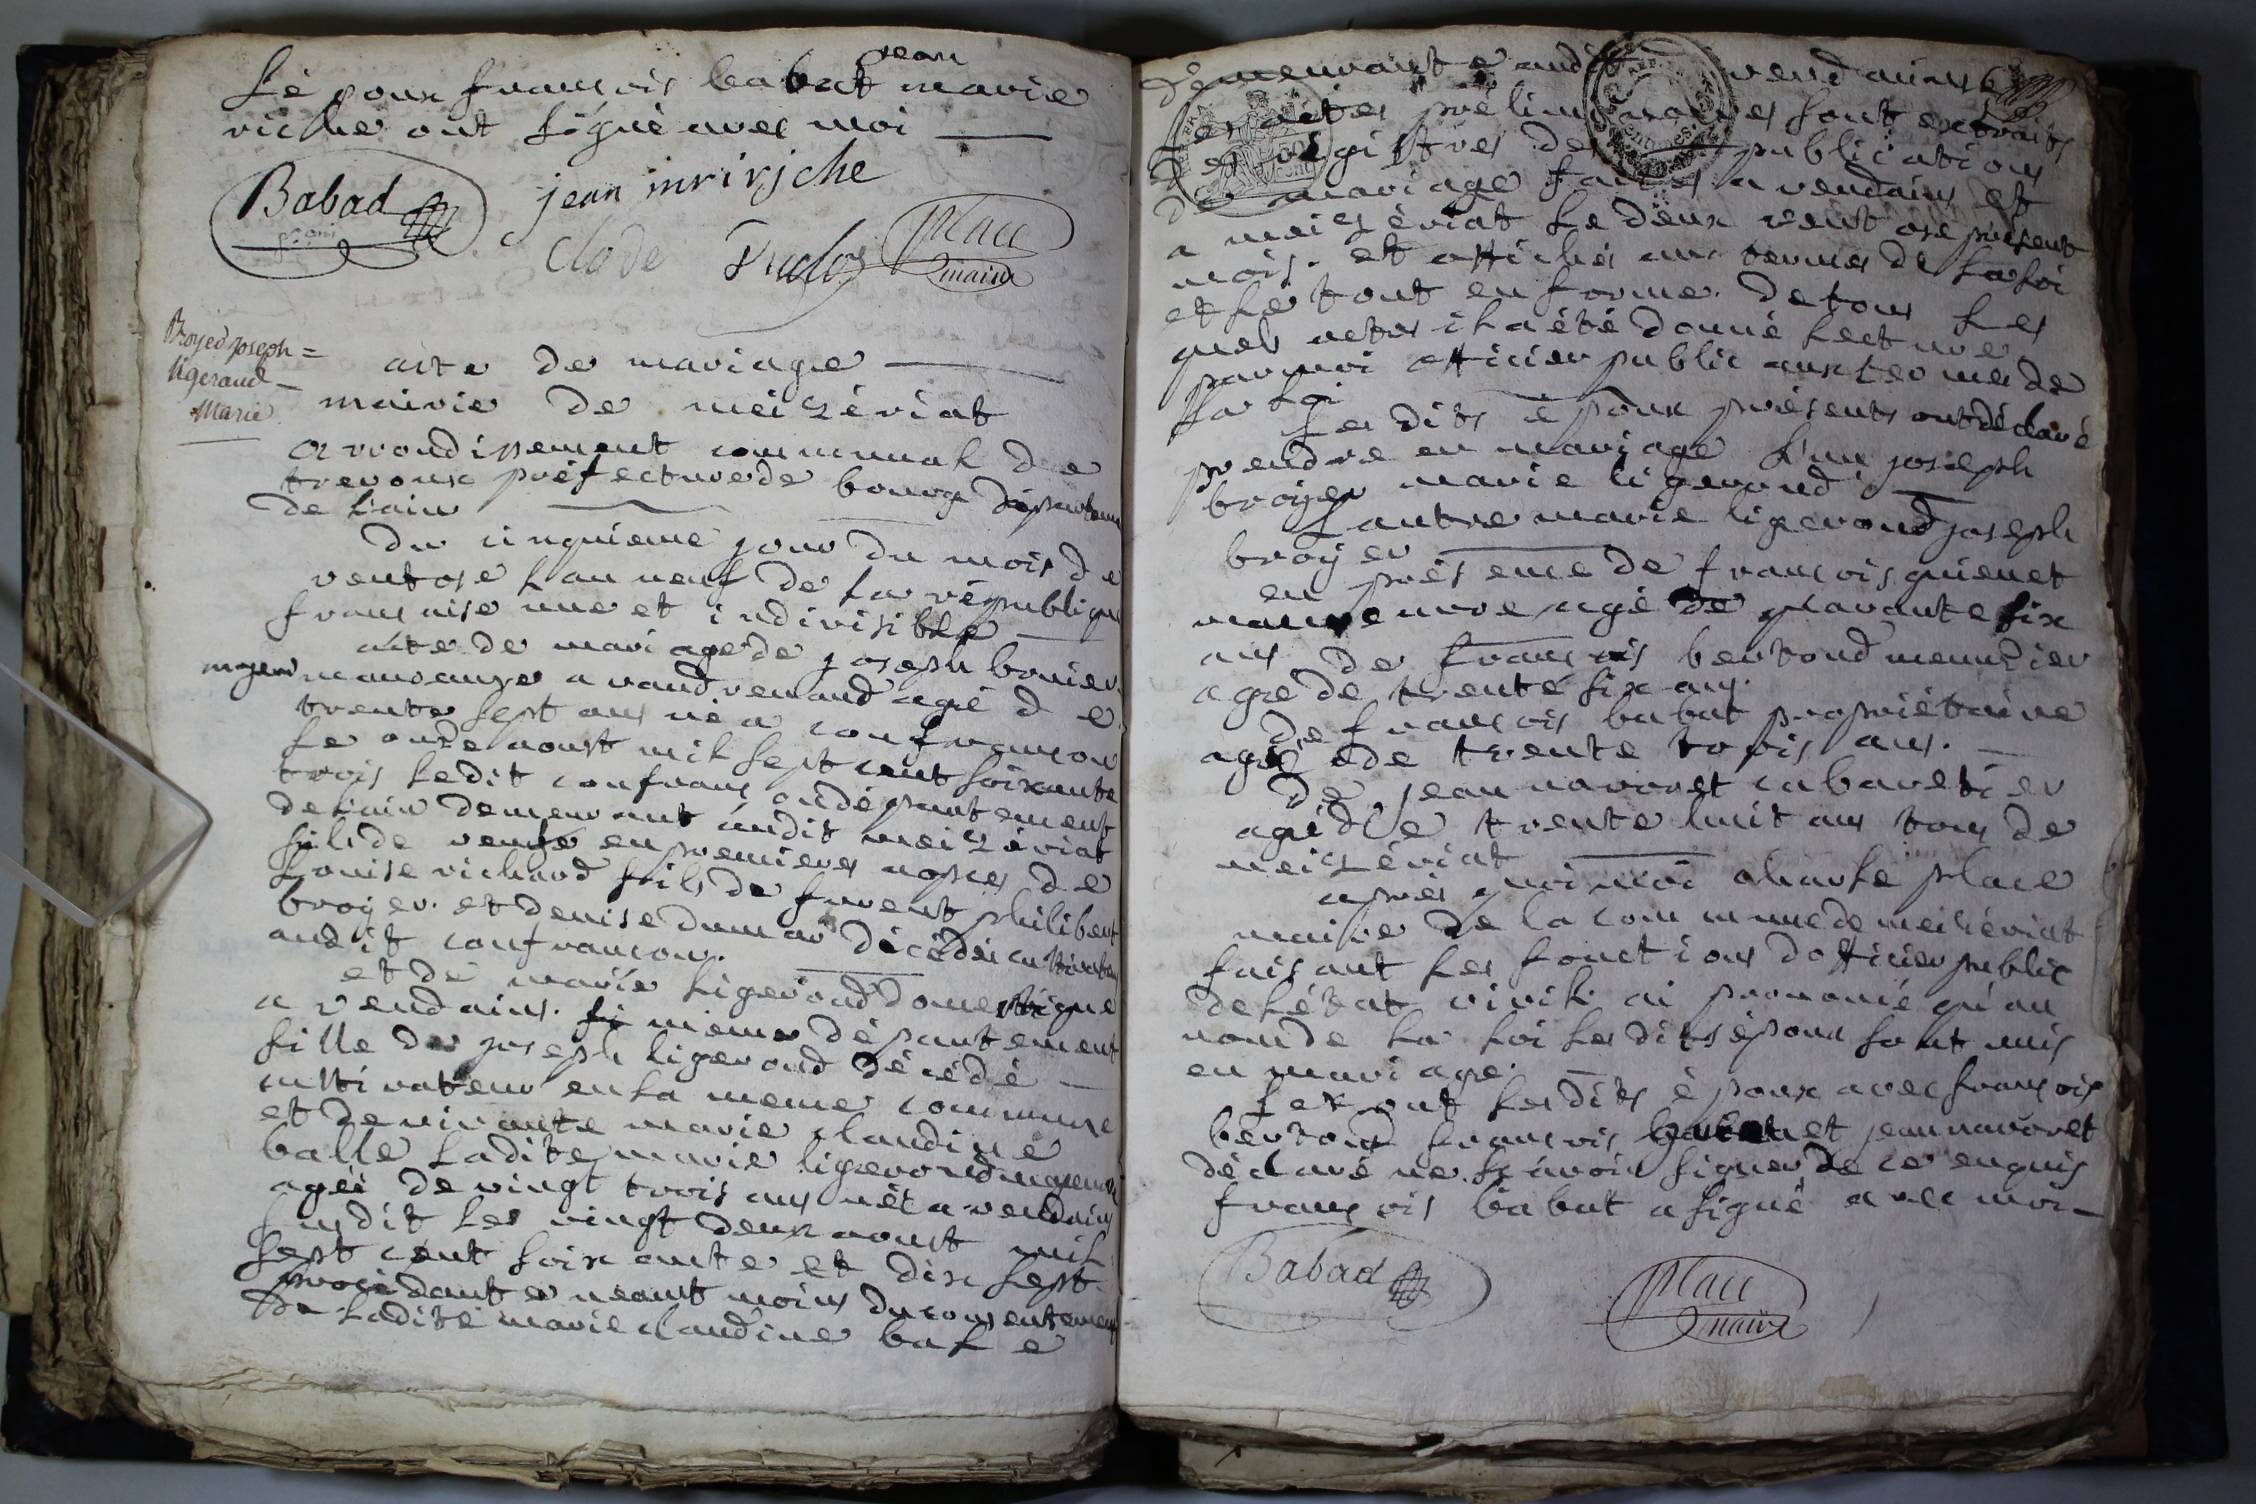 jean
Lé poux francois babat marie
riche ont signé avec moi
Babad jean mrirische
clade place
maire
Broyed joseph =
ligeraud
Marie
acte de mariage
mairie de meizériat
arrondisement communal de
trevoux préfecture de bourg départeme
de l'ain
du cinquieme jour du mois de
ventose l'an neuf de la républiqu
francaise une et indivisible
acte de mariage de joseph broier
majeur manœuvre a vandrenand agé de
trente sept ans né a confrançon
le onze aoust mil sept cent soixante
trois ledit confrançon département
de l'ain demeurant audit meizériat
fils de veufe en premieres nopces de
Louise richard fils de furent philibert
broyer et denise dumas décédéi cultivateu
audit confrancon.
et de marie ligerond domestique
a vendains. meme département
fille de joseph ligerond décédé
cultivateur en la meme commune
et de vivante marie claudine
balle ladite marie ligerond majeure
agéé de vingt trois ans néé a vendains
susdit le vingt deux aoust mil
sept cent soixante et dix sept
procédante néant moins du consentemen
de ladite marie claudine bale
demeurante audit vendains
les actes préliminaires sont extraits
des régistres des publications
de mariage faites a vendains et
a meizériat le deux ventose présent
mois. et affichés aux termes de la loi
et le tout en forme. de tous les
quels actes il a été donné lecture
par moi officier public aux termes de
la loi
les dits époux présents ont déclaré
prendre en mariage l'un joseph
broyer marie ligerond
L'autre marie ligerond joseph
broyer
en présence de francois guienet
manœuvre agé de quarante six
ans de francois bertond meunier
agé de trente six ans.
de francois babat propriétaire
agé de trente trois ans.
de jean navoret cabaretier
agé de trente huit ans tous de
meizériat
après quoi moi charle place
maire de la commune de meizériat
faisant les fonctions d'officier public
de l'état civil ai prononcé qu'au
nom de la loi les dits époux sont unis
en mariage.
et ont lesdits époux avec francois
bertond francois et jean navoret
déclaré ne scavoir signer de ce enquis
francois babat a signé avec moi
Babad place
maire